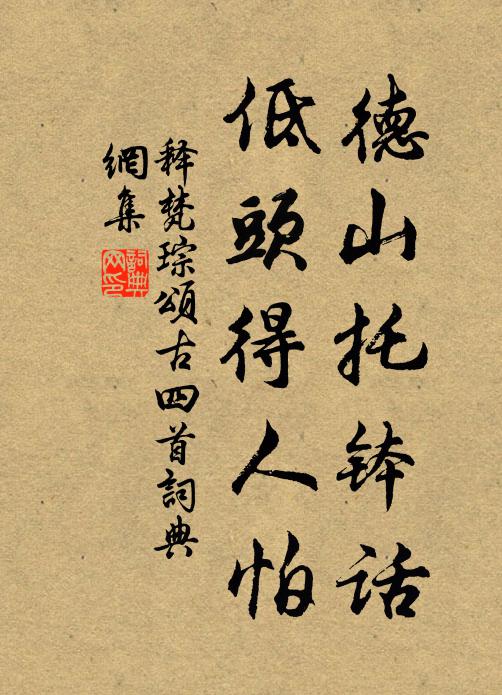 德山托钵话
低頭得人怕
释梵琮頌古四首詞典
網集
詞典网印